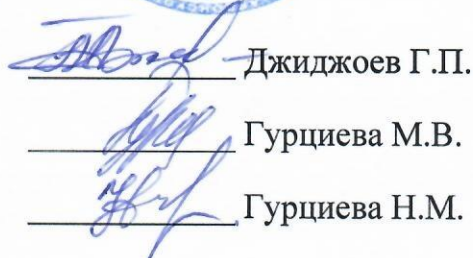 Джиджоев Г.П.
Гурциева М.В.
Гурциева Н.М.